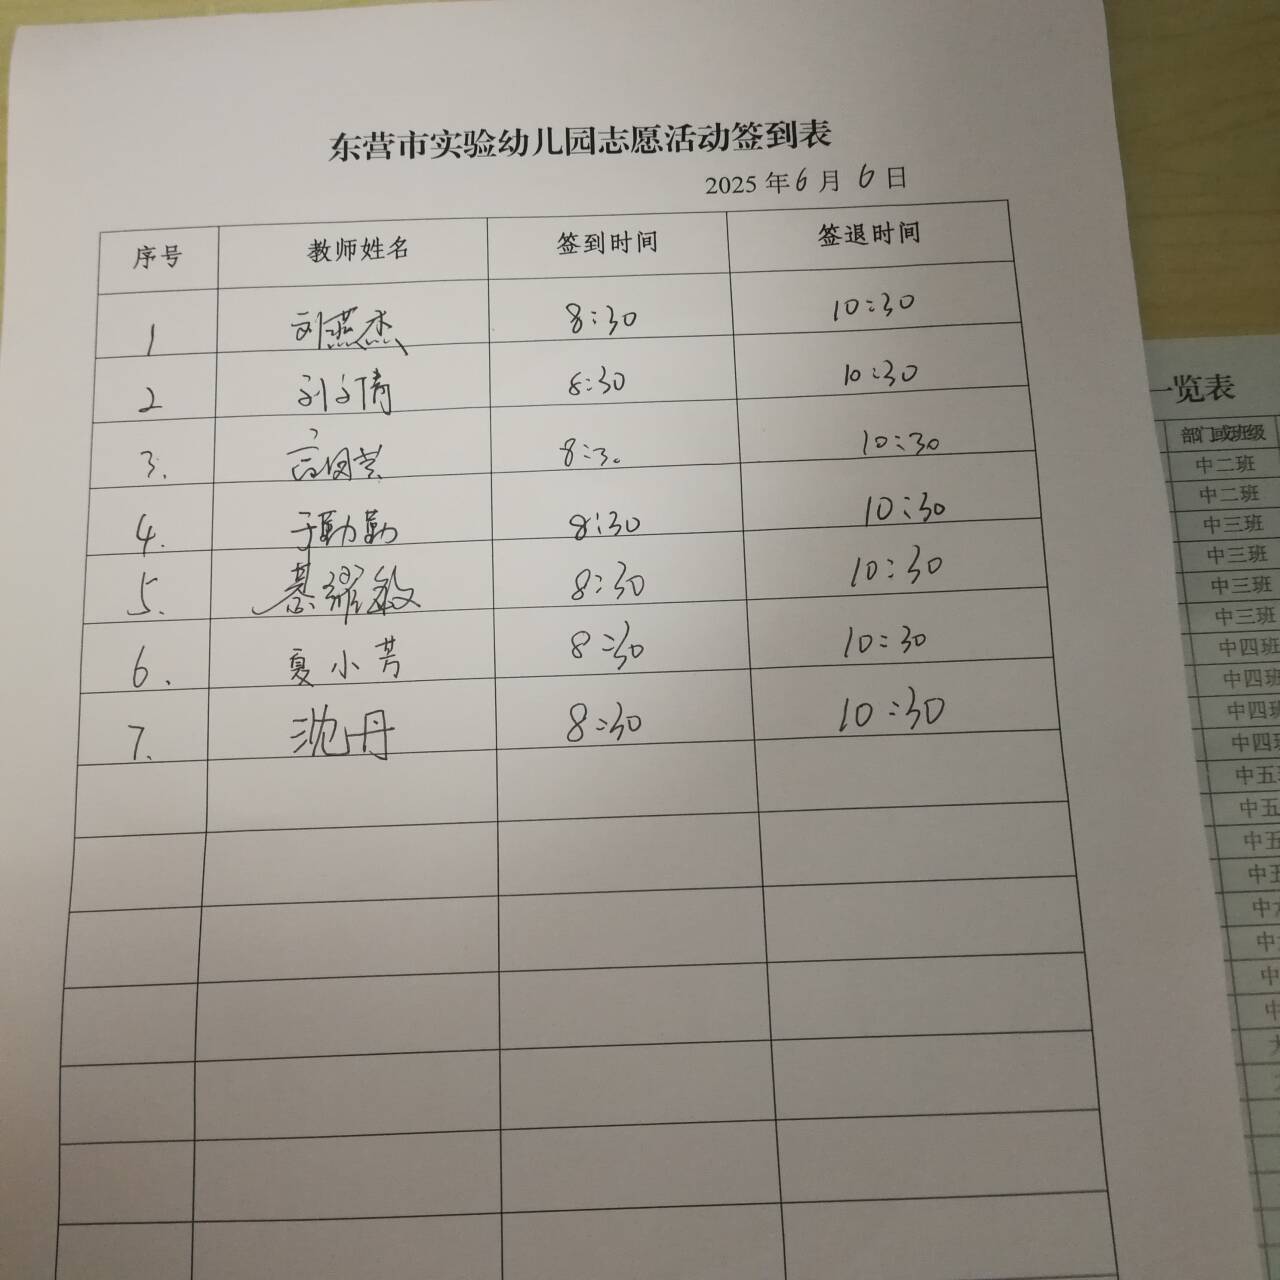 东营市实验幼儿园志愿活动签到表
2025 年 6 月 6 日
序号 教师姓名 签到时间 签退时间
1 刘燕杰 8:30 10:30
2 刘文倩 8:30 10:30
3. 高国芸 8:30 10:30
4. 于勤勤 8:30 10:30
5. 綦耀敏 8:30 10:30
6. 夏小芳 8:30 10:30
7. 沈丹 8:30 10:30
一览表
部门或班级
中二班
中二班
中三班
中三班
中三班
中三班
中四班
中四班
中四班
中四班
中五
中五
中五
中五
中
中
中
中